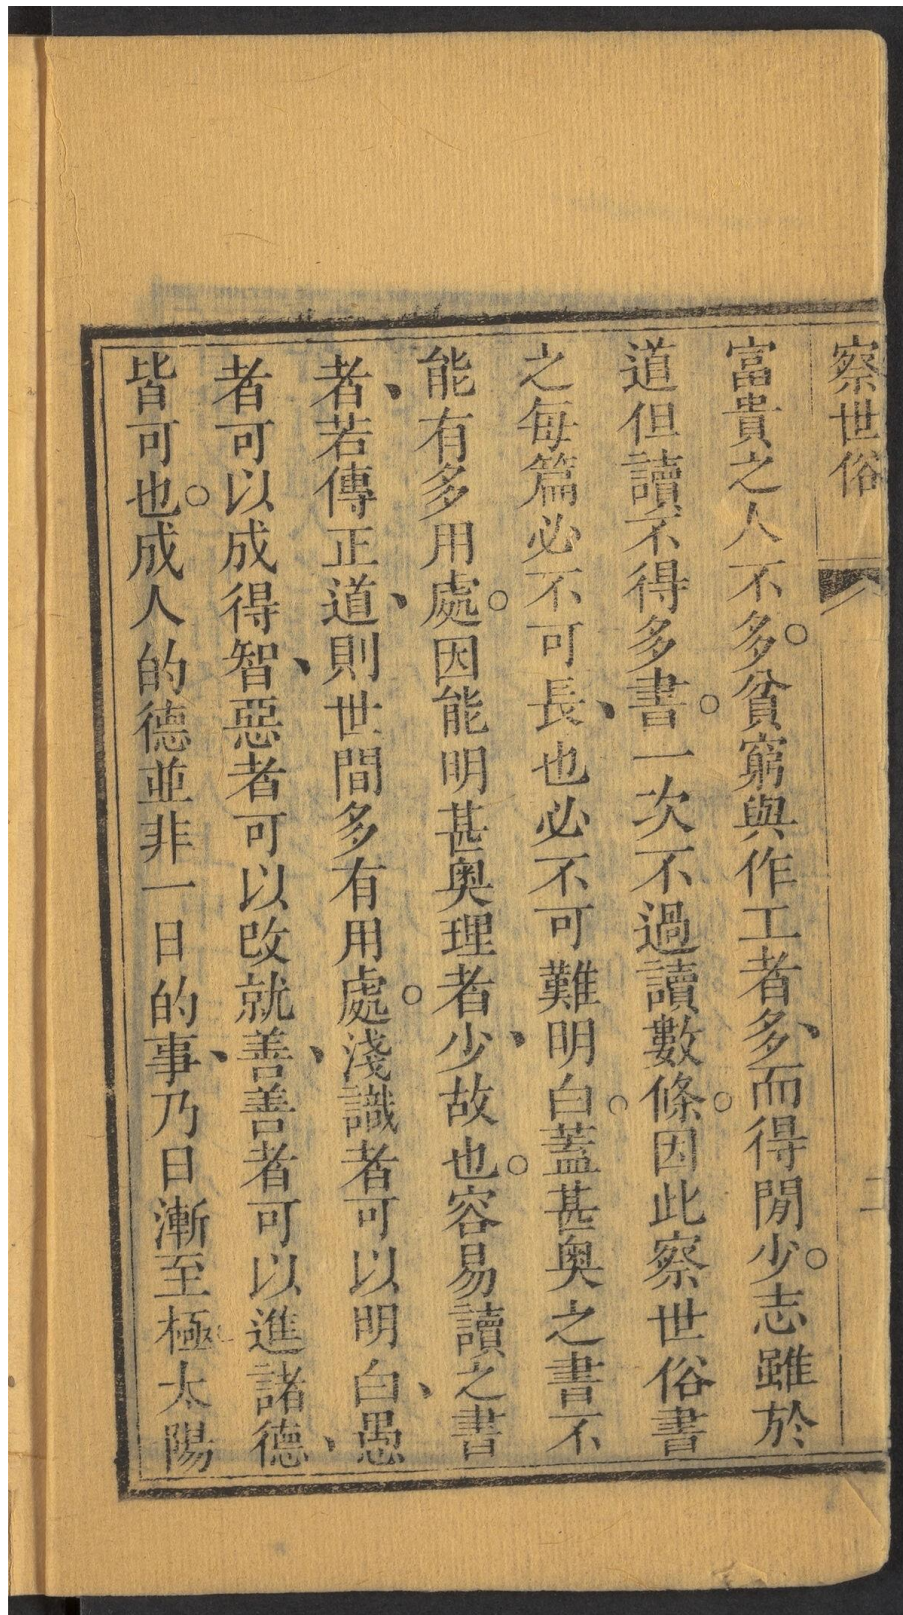 察世俗
二
富貴之人不多。貧窮與作工者多、而得閒少。志雖於
道但讀不得多書。一次不過讀數條。因此察世俗書
之每篇必不可長、也必不可難明白。蓋甚奧之書不
能有多用處。因能明甚奧理者少、故也。容易讀之書
者、若傳正道、則世間多有用處。淺識者可以明白、愚
者可以成得智、惡者可以改就善、善者可以進諸德、
皆可也。成人的德並非一日的事、乃日漸至極太陽